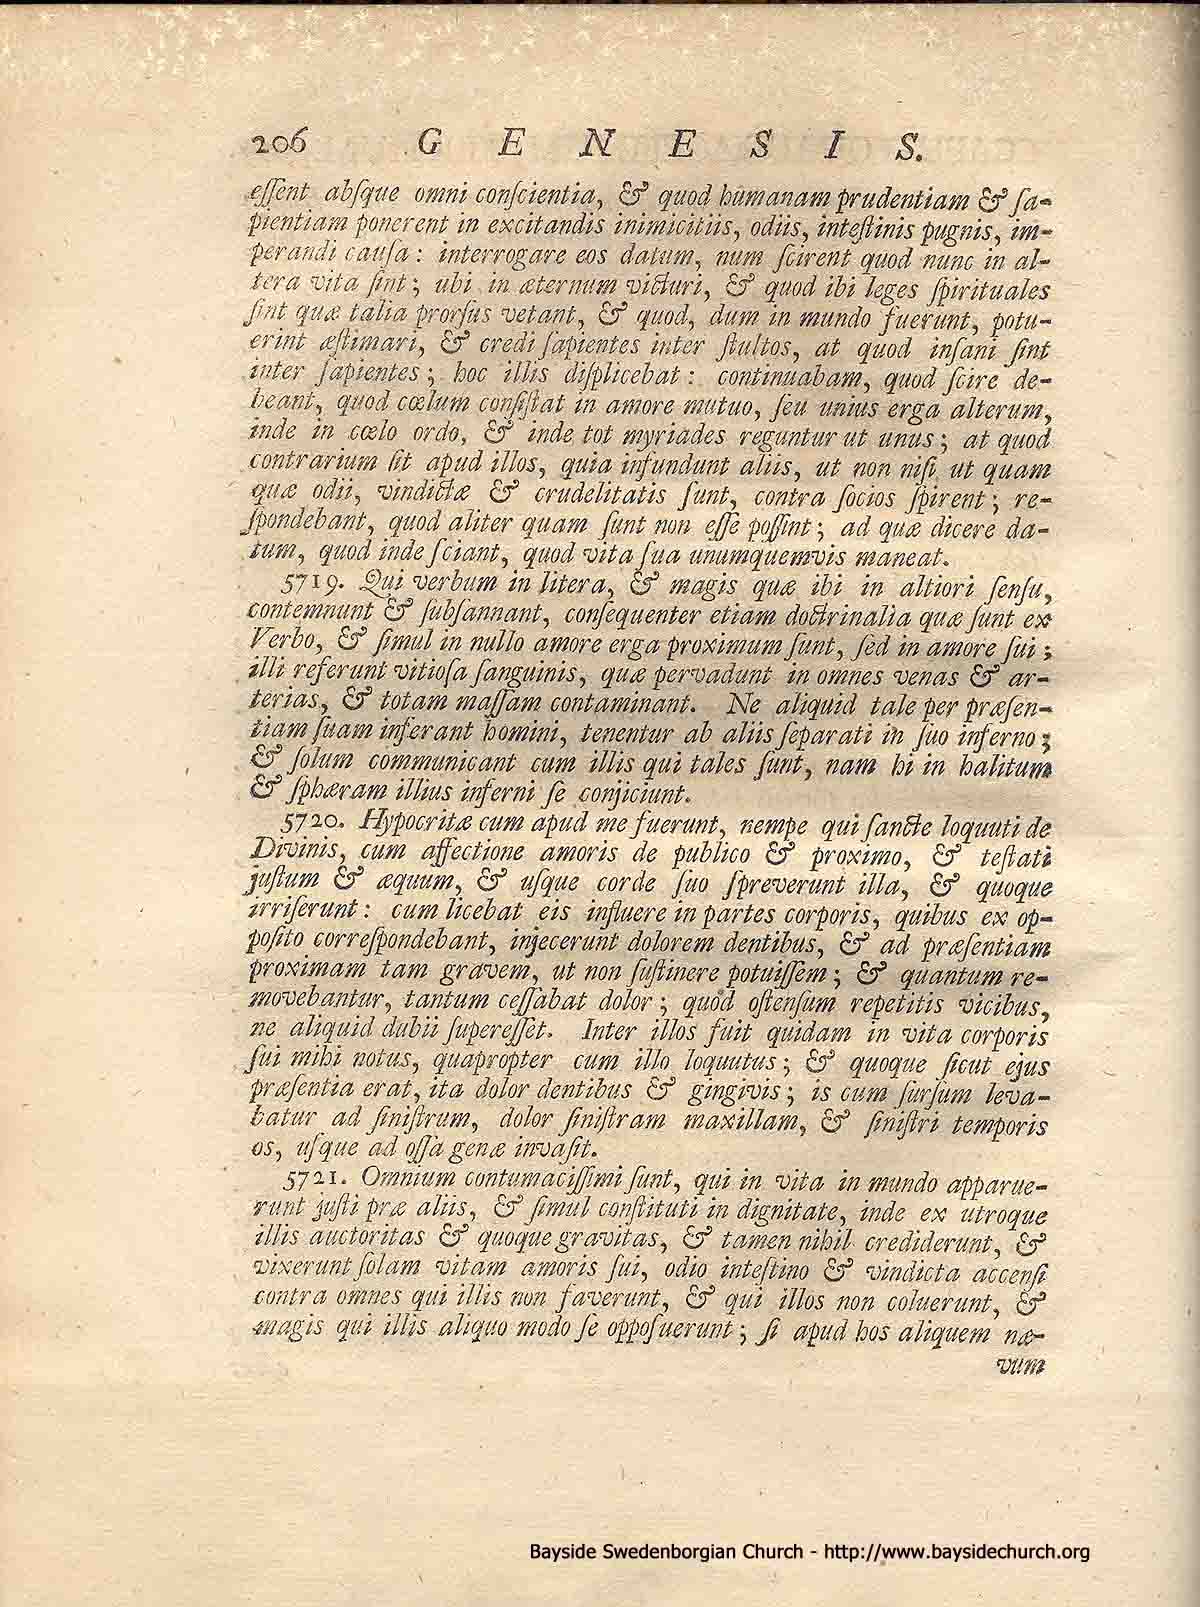 206 G E N E S I S.
eſſent abſque omni conſcientia, & quod humanam prudentiam & ſa-
pientiam ponerent in excitandis inimicitiis, odiis, inteſtinis pugnis, im-
perandi cauſa: interrogare eos datum, num ſcirent quod nunc in al-
tera vita ſint; ubi in æternum victuri, & quod ibi leges ſpirituales
ſint quæ talia prorſus vetant, & quod, dum in mundo fuerunt, potu-
erint æſtimari, & credi ſapientes inter ſtultos, at quod inſani ſint
inter ſapientes; hoc illis diſplicebat: continuabam, quod ſcire de-
beant, quod cœlum conſiſtat in amore mutuo, ſeu unius erga alterum,
inde in cœlo ordo, & inde tot myriades reguntur ut unus; at quod
contrarium ſit apud illos, quia infundunt aliis, ut non niſi ut quam
quæ odii, vindictæ & crudelitatis ſunt, contra ſocios ſpirent; re-
ſpondebant, quod aliter quam ſunt non eſſe poſſint; ad quæ dicere da-
tum, quod inde ſciant, quod vita ſua unumquemvis maneat.
5719. Qui verbum in litera, & magis quæ ibi in altiori ſenſu,
contemnunt & ſubſannant, conſequenter etiam doctrinalia quæ ſunt ex
Verbo, & ſimul in nullo amore erga proximum ſunt, ſed in amore ſui;
illi referunt vitioſa ſanguinis, quæ pervadunt in omnes venas & ar-
terias, & totam maſſam contaminant. Ne aliquid tale per præſen-
tiam ſuam inferant homini, tenentur ab aliis ſeparati in ſuo inferno;
& ſolum communicant cum illis qui tales ſunt, nam hi in halitum
& ſphæram illius inferni ſe conjiciunt.
5720. Hypocritæ cum apud me fuerunt, nempe qui ſancte loquuti de
Divinis, cum affectione amoris de publico & proximo, & teſtati
juſtum & æquum, & uſque corde ſuo ſpreverunt illa, & quoque
irriſerunt: cum licebat eis influere in partes corporis, quibus ex op-
poſito correſpondebant, injecerunt dolorem dentibus, & ad præſentiam
proximam tam gravem, ut non ſuſtinere potuiſſem; & quantum re-
movebantur, tantum ceſſabat dolor; quod oſtenſum repetitis vicibus,
ne aliquid dubii ſupereſſet. Inter illos fuit quidam in vita corporis
ſui mihi notus, quapropter cum illo loquutus; & quoque ſicut ejus
præſentia erat, ita dolor dentibus & gingivis; is cum ſurſum leva-
batur ad ſiniſtrum, dolor ſiniſtram maxillam, & ſiniſtri temporis
os, uſque ad oſſa genæ invaſit.
5721. Omnium contumaciſſimi ſunt, qui in vita in mundo apparue-
runt juſti præ aliis, & ſimul conſtituti in dignitate, inde ex utroque
illis auctoritas & quoque gravitas, & tamen nihil crediderunt, &
vixerunt ſolam vitam amoris ſui, odio inteſtino & vindicta accenſi
contra omnes qui illis non faverunt, & qui illos non coluerunt, &
magis qui illis aliquo modo ſe oppoſuerunt; ſi apud hos aliquem næ-
vum
Bayside Swedenborgian Church - http://www.baysidechurch.org